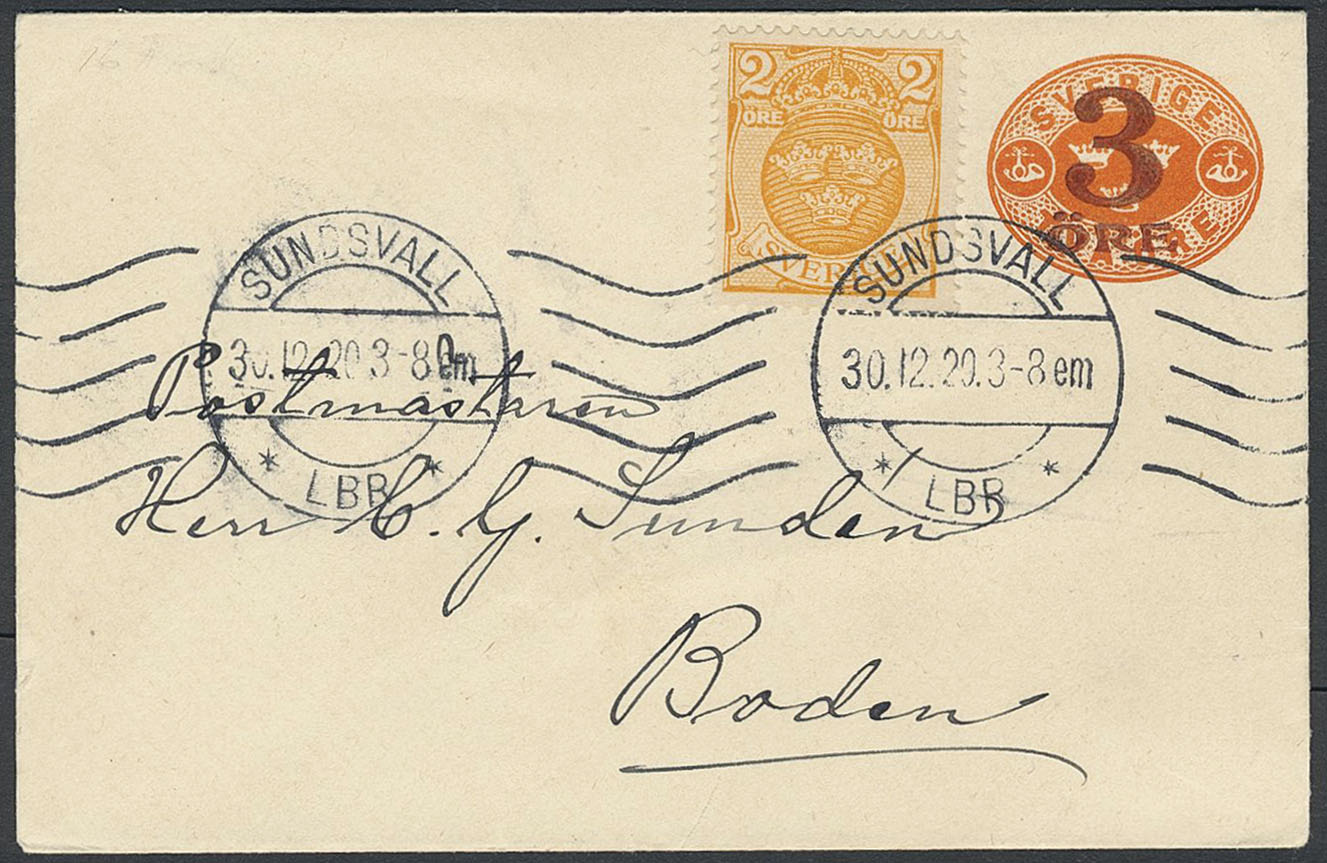 2 2
ÖRE ÖRE
SVERIGE
SVERIGE
3
ÖRE
SUNDSVALL
30.12.20.3-8 em
LBR
SUNDSVALL
30.12.20.3-8 em
LBR
Postmästaren
Herr C. G. Sundén
Boden